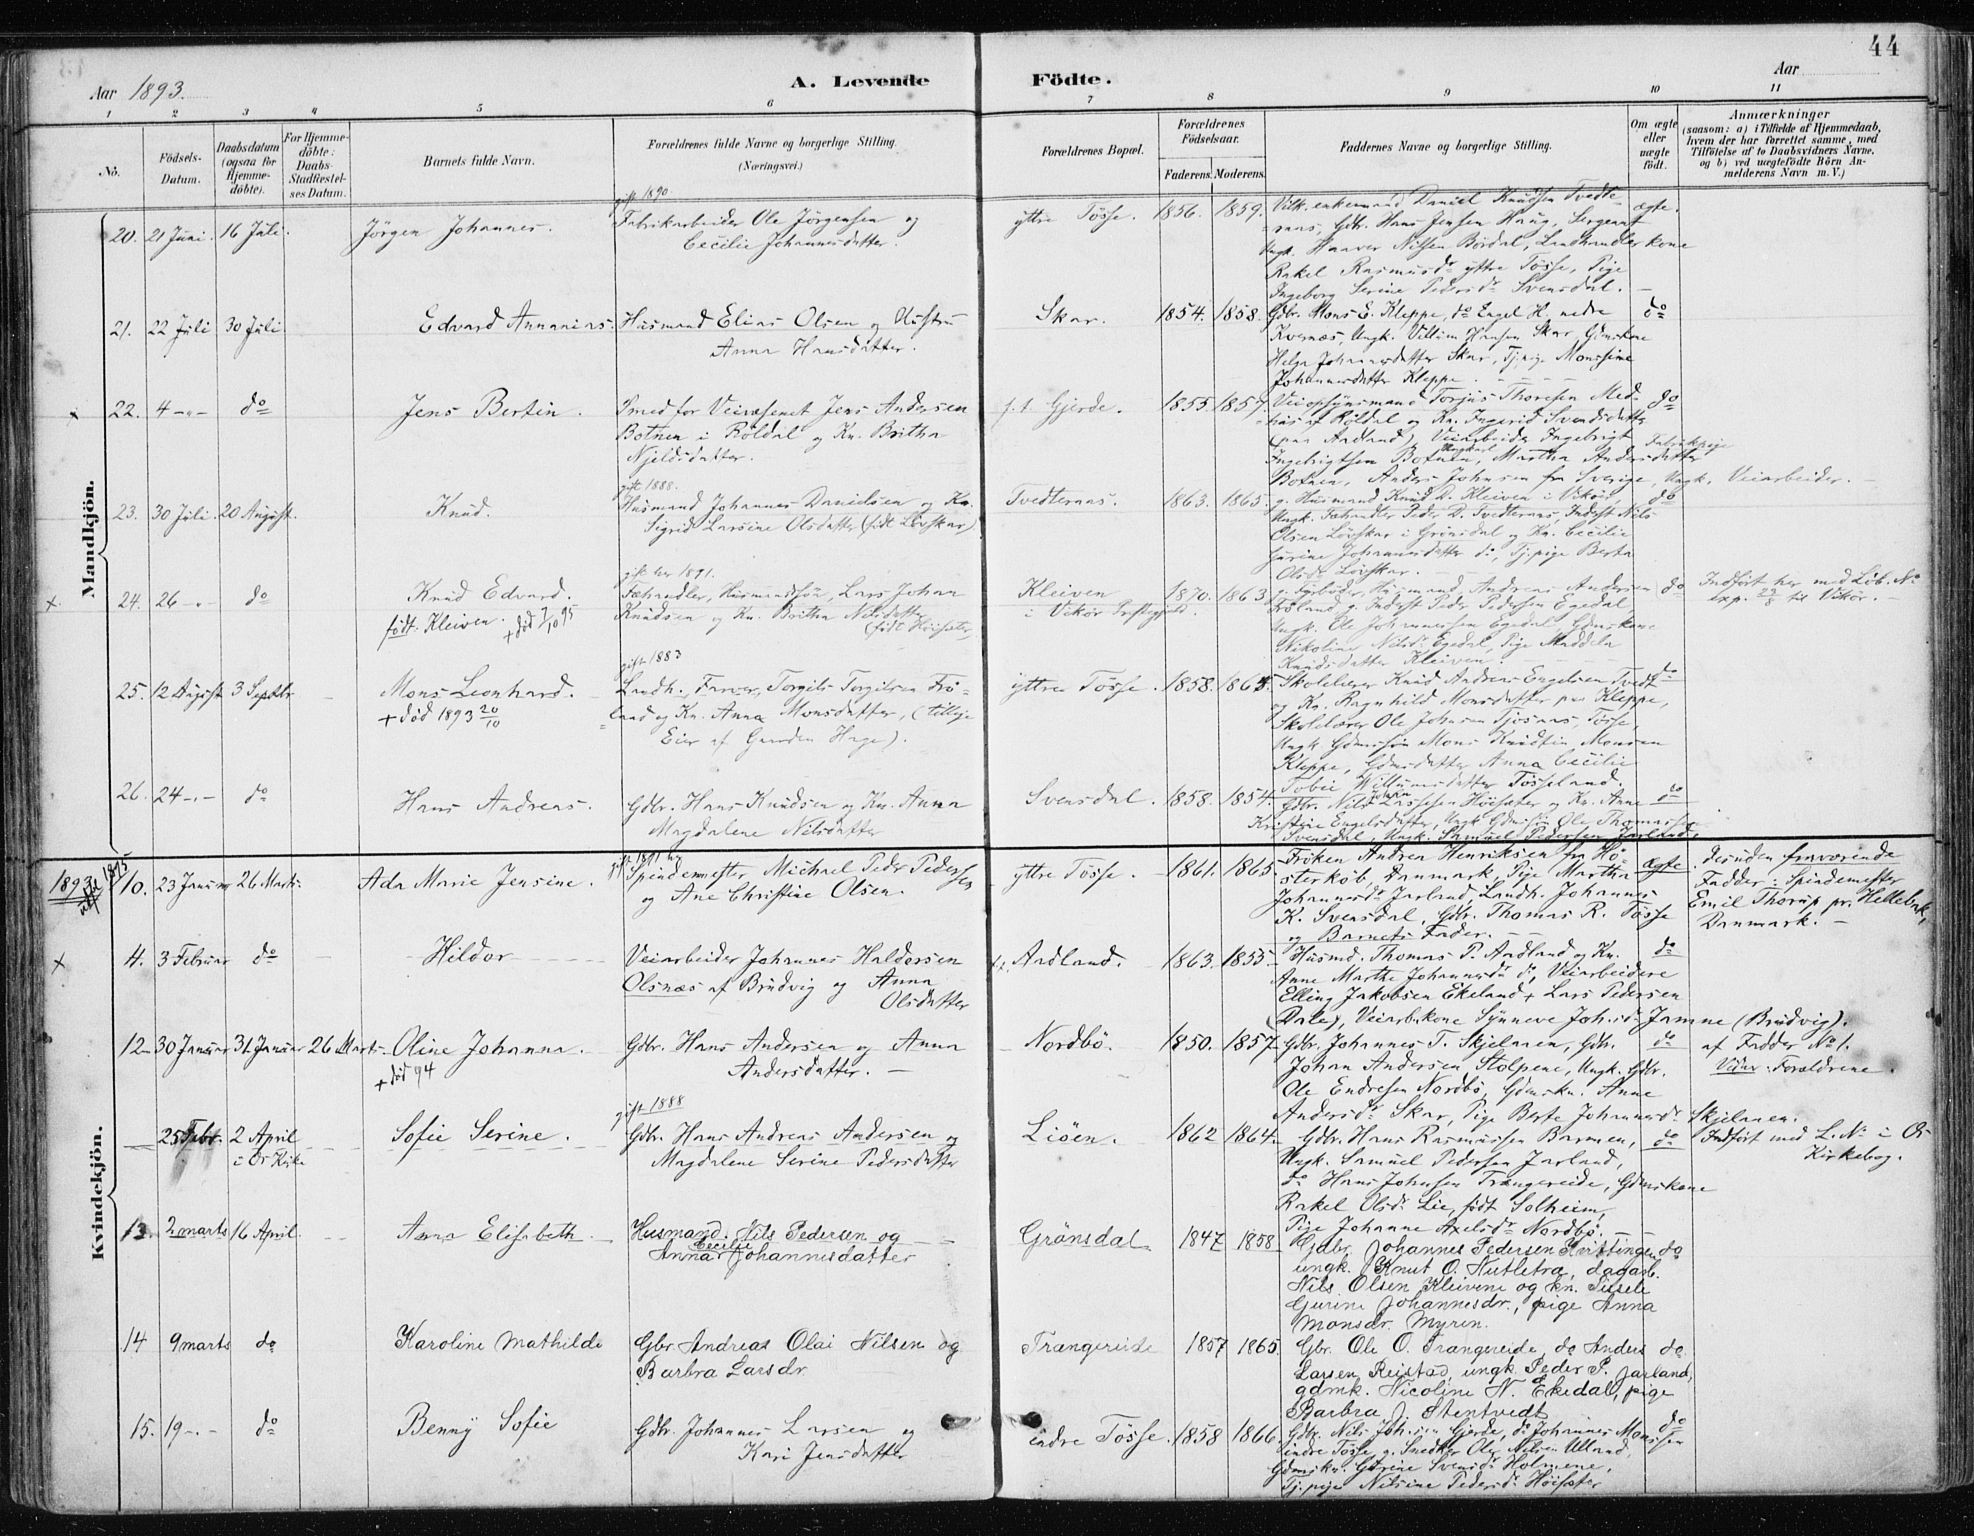 44
Aar 1893.
A. Levende Födte.
Aar
1 2 3 4 5 6 7 8 9 10 11
No.
Födsels-Datum.
Daabsdatum (ogsaa for Hjemme-döbte).
For Hjemme-döbte: Daabs-Stadfæstel-ses Datum.
Barnets fulde Navn.
Forældrenes fulde Navne og borgerlige Stilling.
(Næringsvei.)
Forældrenes Bopæl.
Forældrenes Födselsaar.
Faderens. Moderens.
Faddernes Navne og borgerlige Stilling.
Om ægte eller uægte födt.
Anmærkninger
(saasom: a) i Tilfælde af Hjemmedaab,
hvem der har forrettet samme, med
Tilföielse af to Daabsvidners Navne.
og b) ved uægtefödte Börn An-
melderens Navn m. V.)
Mandkjön.
gift 1890
20. 21 Juni. 16 Juli. Jörgen Johannes. Fabrikarbeider Ole Jörgensen og
Cecilie Johannesdatter.
yttre Tösse. 1856. 1859. Vilk. enkemand Daniel Knudsen Tvedte
=ras, Gdbr. Hans Jensen Haug, Sergeant
Ungk. Haaver Nilsen Bördal, Landhandlerkone
Rakel Rasmusdr yttre Tösse, Pige
Ingeborg Serine Pedersdr Svensdal.
ægte.
21. 22 Juli 30 Juli Edvard Annanias. Husmand Elias Olsen og Hustru
Anna Hansdatter.
Skar. 1854. 1858. Gdbr. Mons E. Kleppe, do Engel H. nedre
Kvernæs, Ungk. Villum Hansen Skar, Gdmskone
Helga Johannesdatter Skar, Tj.pige Monsine
Johannesdatter Kleppe.
do
x 22. 4 -"- do Jens Bertin. Smed for Veivæsenet Jens Andersen
Botnen i Röldal og Kn. Britha
Njeldsdatter.
f.t. Gjerde. 1855. 1857. Veiopsynsmand Torjus Thoresen Med-
=has af Röldal og Kn. Ingerid Svendsdatter
(paa Aadland), Veiarbeider Ingebrigt
Ingebrigtsen Botnen, Martha Andersdatter
Botnen, Anders Johnsen fra Sverige, Ungk. Veiarbeider.
Fabrikpige
do
gift 1888.
23. 30 Juli. 20 August. Knud. Husmand Johannes Danielsen og Kn.
Sigrid Larsine Olsdatter (födt Lövskar)
Tvedteraas. 1863. 1865. g. Husmand Knud D. Kleiven i Vikör,
Ungk. Fæhandler Peder D. Tvedteraas, Inderst Nils
Olsen Lövskar i Grönsdal og Kn. Cecilie
Gurine Johannesdatter do, Tj.pige Berta
Olsdr Lövskar.
do
gift her 1891.
x 24. 26 -"- do Knud Edvard. Fæhandler, Husmandssön, Lars Johan
födt. Kleiven. + död 7/10 95
Knudsen og Kn. Britha Nilsdatter
(födt Höisæter)
Kleiven
i Vikör Præstegjeld.
1870. 1863
Husmand Andreas Andersen
Fröland g. Inderst Peder Pedersen Egedal,
Ungk. Ole Johannessen Egedal, Gdmskone
Nikoline Nilsdr Egedal, Pige Maddela
Knudsdatter Kleiven.
do Indfört her med Löb. No
exp. 29/8 til Vikör.
gift 1883
25. 12 August 3 Septbr. Mons Leonhard.
+ död 1893 20/10
Landh. Farver, Torgils Torgilsen Frö-
land og Kn. Anna Monsdatter, (tillige
Eier af Gaarden Hage).
yttre Tösse. 1858. 1864. Skolelærer Knud Andreas Engelsen Tvedt
og Kn. Ragnhild Monsdatter paa Kleppe,
Skolelærer Ole Johnsen Tjosaas, Tösse,
Ungk. Gdmssön Mons Knudtin Monsen
Kleppe, Gdmsdatter Anna Cecilie
Tobie Willumsdatter Tösseland
do
26. 24 -"- do Hans Andreas. Gdbr. Hans Knudsen og Kn. Anna
Magdalene Nilsdatter
Svensdal. 1858. 1854. Gdbr. Nils Johan Larsesen Höisæter og Kn. Anne
Kristine Engelsdatter, Ungk. Gdmssön Ole Thomassen
Svensdal, Ungk. Samuel Pedersen Jarland.
do
Kvindekjön.
1893.
gift 1891 her
10. 23 Januar 26 Marts. Ada Marie Jensine. Spindemester Michael Peder Pedersen
og Ane Christine Olsen.
yttre Tösse. 1861. 1865. Fröken Andrea Henriksen fra Hö-
sterköb, Danmark, Pige Martha
Johannesdr Jarland, Landh. Johannes
K. Svensdal, Gdbr. Thomas R. Tösse
og Barnets Fader.
ægte desuden fraværende
Fadder: Spindemester
Emil Thorup pr. Hellebæk,
Danmark. -
x 4. 3 Februar do Hildor Veiarbeider Johannes Haldorsen
Olsnæs af Brudvig og Anna
Olsdatter
f.t. Aadland. 1863. 1855 Husmd. Thomas P. Aadland og Kn.
Anne Marthe Johannesdr do, Veiarbeidere
Elling Jakobsen Ekeland + Lars Pedersen
(Dale), Veiarb.kone Synneve Joh.sdr Jamne (Brudvig).
do
12. 30 Januar 31 Januar 26 Marts. Oline Johanna.
+ död 94
Gdbr. Hans Andersen og Anna
Andersdatter. -
Nordbö. 1850. 1857. Gdbr. Johannes T. Skjelaaen, Gdbr.
Johan Andersen Stolpene, Ungk. Gdbr.
Ole Endresen Nordbö, Gdmskn. Anne
Andersdr Skar, Pige Berte Johannesdr Skjelaaen.
do af Fadder No 1.
Vidner: Forældrene.
gift 1888
25 Febr. 2 April
i Os Kirke
Sofie Serine. Gdbr. Hans Andreas Andersen og
Magdalene Serine Pedersdatter
Liöen. 1862 1864. Gdbr. Hans Rasmussen Barmen,
Ungk. Samuel Pedersen Jarland,
do Hans Johnsen Trængereide, Gdmskone
Rakel Olsdr Lie, födt Solheim,
Pige Johanne Axelsdr Nordbö.
do Indfört med L. No i Os
Kirkebog.
13. 2 marts 16 April. Anna Elisabeth. Husmand. Nils Pedersen og
Anna Cecilie Johannesdatter
Grönsdal 1847 1858 Gdbr. Johannes Pedersen Kvittingen
ungk. Knut O. Nutletra, dagarb.
Nils Olsen Kleivene og kn. Sisele
Gurine Johannesdr., pige Anna
Monsdr. Myren.
do
14 9 marts do Karoline Mathilde Gbr. Andreas Olai Nilsen og
Barbra Larsdr
Trængereide 1857 1865. Gbr. Ole O. Trængereide, do Anders
Larsen Reistad, ungk. Peder P. Jarland,
gdmk. Nicoline N. Ekedal, pige
Barbra J. Stentvedt
do
15. 19 -"- do Benny Sofie Gdbr. Johannes Larsen og
Kari Jensdatter
indre Tösse. 1858 1866. Gdbr. Nils Joh.sen Gjerde, do Johannes Monssen
indre Tösse, g. Snedker Ole Nilsen Ulland,
Gdmskn. Gurine Svensdr Holmene,
Tj.pige Nilsine Pedersdr Höisæter
do